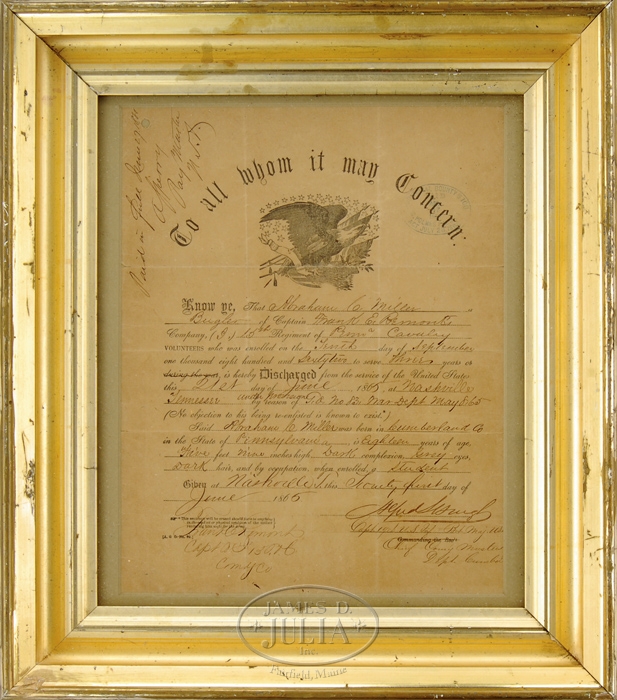 Paid in full June 27th
Pay Master
To all whom it may Concern:
Know ye, That Abraham C Miller
Bugler of Captain Frank E.
Company, ( ) 15th Regiment of Penna Cavalry
VOLUNTEERS who was enrolled on the Tenth day of September
one thousand eight hundred and Sixty two to serve three years or
during the war, is hereby Discharged from the service of the United States
this 21st day of June 1865, at Nashville
Tennessee by reason of No 83 War Dept May 8 65
(No objection to his being re-enlisted is known to exist.)
Said Abraham C. Miller was born in Cumberland Co
in the State of Pennsylvania, is Eighteen years of age,
Five feet Nine inches high, Dark complexion, Grey eyes,
Dark hair, and by occupation, when enrolled, a Student
Given at Nashville this Twenty first day of
June 1865
Capt
Commanding the Reg't
Comdg Co
JAMES D.
JULIA
Inc.
Fairfield, Maine